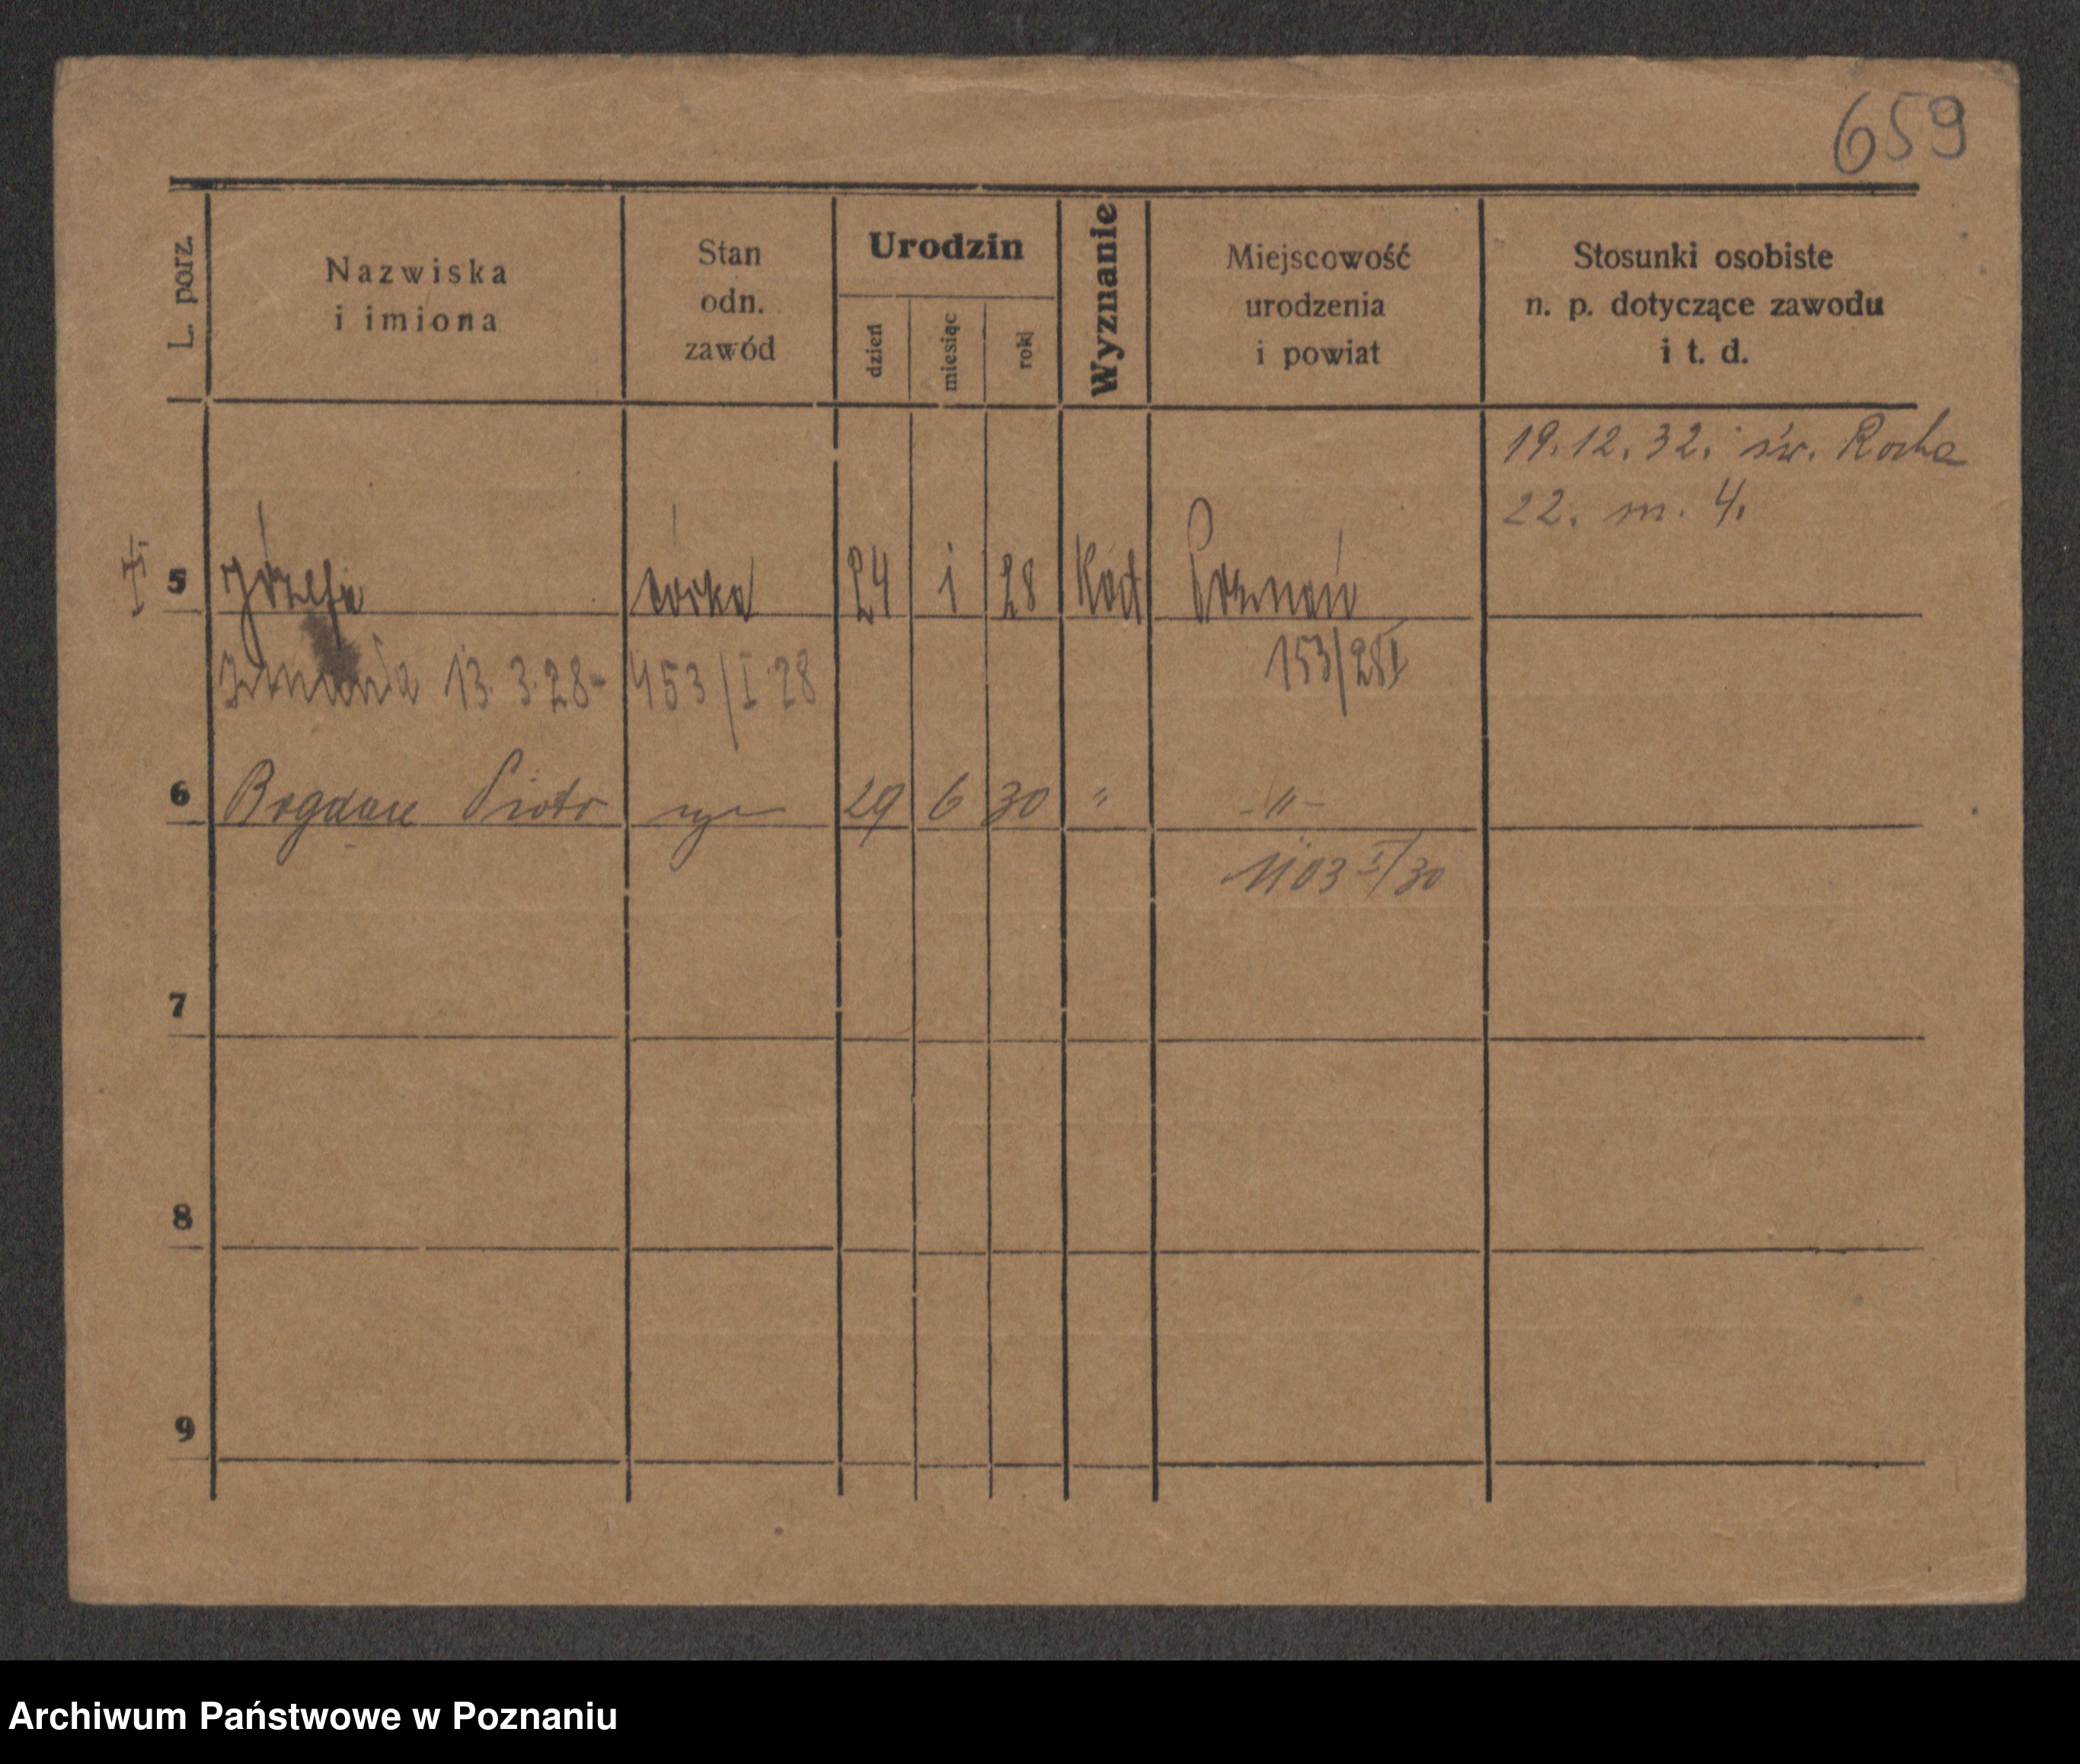 659
L. porz.
Nazwiska
i imiona
Stan
odn.
zawód
Urodzin
dzień
miesiąc
rok
Wyznanie
Miejscowość
urodzenia
i powiat
Stosunki osobiste
n. p. dotyczące zawodu
i t. d.
19.12.32. św. Rocha
22. m. 4.
5 Józefa córka 24 1 28 Kat Poznań
zmarła 13.3.28- 453/I 28 153/28I
6 Bogdan Piotr syn 29 6 30 " -"-
1103 I/30
7
8
9
Archiwum Państwowe w Poznaniu